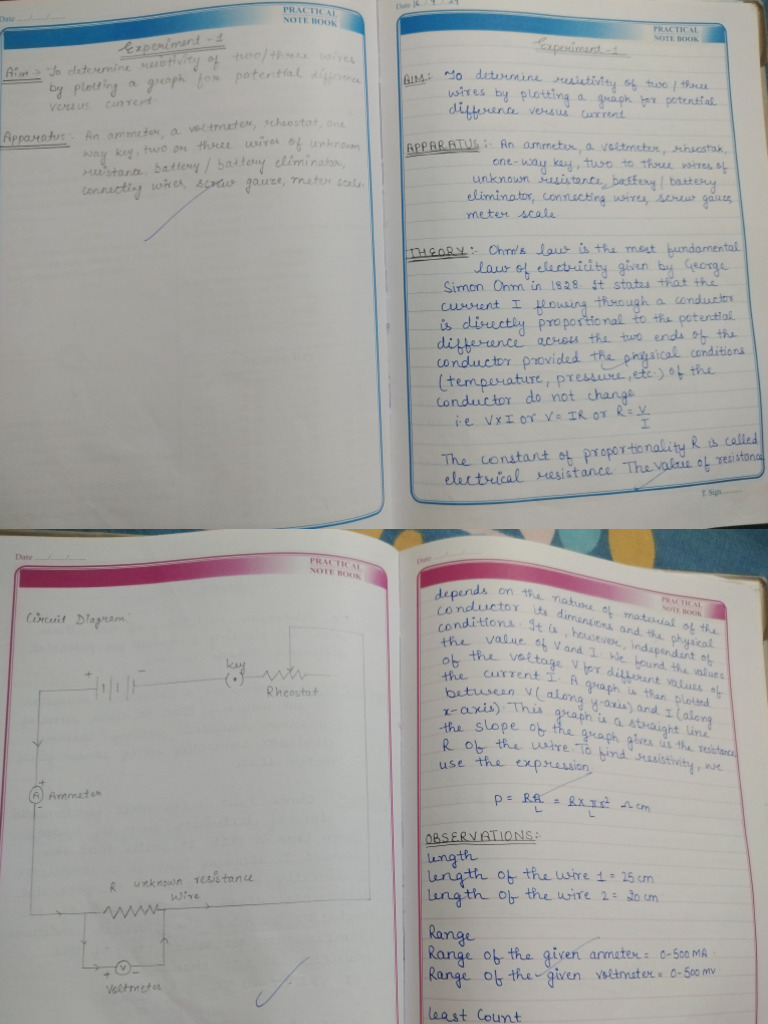 Date
PRACTICAL
NOTE BOOK
Experiment - 1
Aim :- To determine resistivity of two/three wires
by plotting a graph for potential difference
versus current.
Apparatus:- An ammeter, a voltmeter, rheostat, one
way key, two or three wires of unknown
resistance, battery / battery eliminator,
connecting wires, screw gauze, meter scale.
Date 16
PRACTICAL
NOTE BOOK
Experiment - 1
AIM:- To determine resistivity of two/three
wires by plotting a graph for potential
difference versus current
APPARATUS:- An ammeter, a voltmeter, rheostak,
one-way key, two to three wires of
unknown resistance, battery/battery
eliminator, connecting wires, screw gauze,
meter scale
THEORY:- Ohm's law is the most fundamental
law of electricity given by George
Simon Ohm in 1828. It states that the
current I flowing through a conductor
is directly proportional to the potential
difference across the two ends of the
conductor provided the physical conditions
(temperature, pressure, etc.) of the
conductor do not change
i.e V∝I or V = IR or R = V/I
The constant of proportionality R is called
electrical resistance. The value of resistance
T. Sign
Date
PRACTICAL
NOTE BOOK
Circuit Diagram:
+ -
key
(•)
Rheostat
+
A Ammeter
-
R unknown resistance
wire
+ V -
Voltmeter
Date
PRACTICAL
NOTE BOOK
depends on the nature of material of the
conductor its dimensions and the physical
conditions. It is, however, independent of
the value of V and I. We found the values
of the voltage V for different values of
the current I. A graph is then plotted
between V (along y-axis) and I (along
x-axis). This graph is a straight line
the slope of the graph gives us the resistance
R of the wire. To find resistivity, we
use the expression
ρ = RA/L = R×πr²/L Ωcm
OBSERVATIONS:-
Length
Length of the wire 1 = 25 cm
Length of the wire 2 = 20 cm
Range
Range of the given ammeter = 0-500 MA
Range of the given voltmeter = 0-500 mv
Least Count